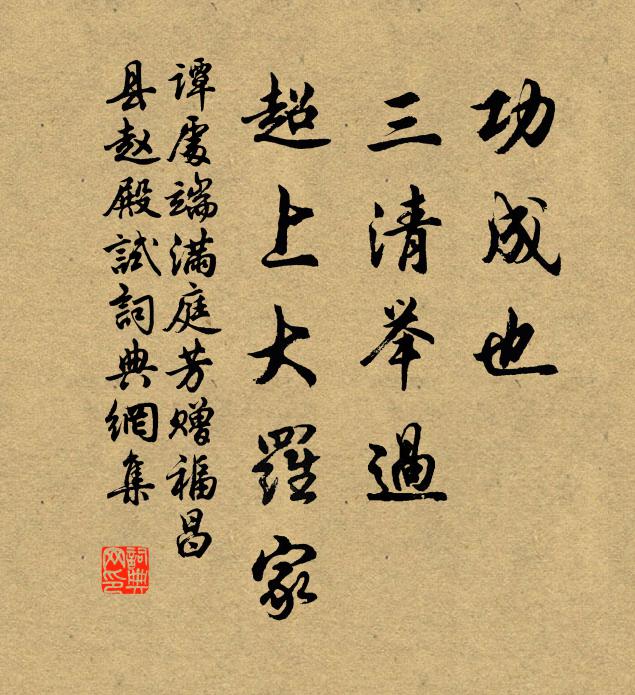 功成也
三清举過
超上大羅家
譚處端满庭芳赠福昌
县赵殿試詞典網集
詞典网印